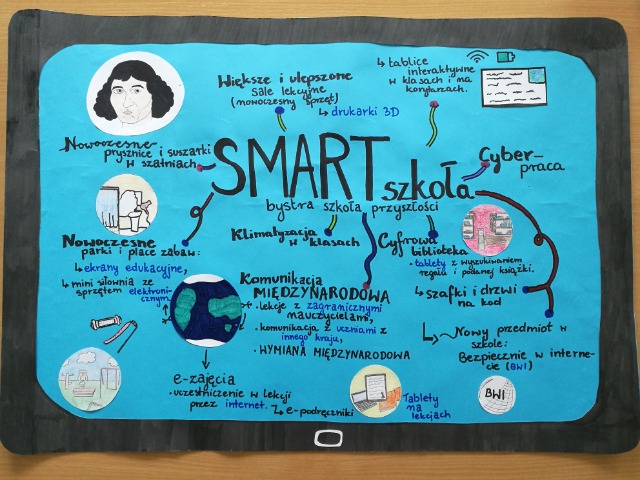 Większe i ulepszone
sale lekcyjne
(nowoczesny sprzęt)
↳ drukarki 3D
↳ tablice
interaktywne
w klasach i na
korytarzach.
Nowoczesne
prysznice i suszarki
w szatniach
SMART szkoła
bystra szkoła przyszłości
Cyber-
praca
Nowoczesne
parki i place zabaw:
↳ ekrany edukacyjne,
↳ mini siłownia ze
sprzętem elektroni-
cznym
Klimatyzacja
w klasach
Cyfrowa
biblioteka
• tablety z wyszukiwaniem
regału i podanej książki.
↳ szafki i drzwi
na kod
Komunikacja
MIĘDZYNARODOWA
• lekcje z zagranicznymi
nauczycielami,
• komunikacja z uczniami z
innego kraju,
• WYMIANA MIĘDZYNARODOWA
↳ Nowy przedmiot w
szkole:
Bezpiecznie w interne-
cie (BWI)
e-zajęcia
• uczestniczenie w lekcji
przez internet.
↳ e-podręczniki
Tablety
na
lekcjach
BWI